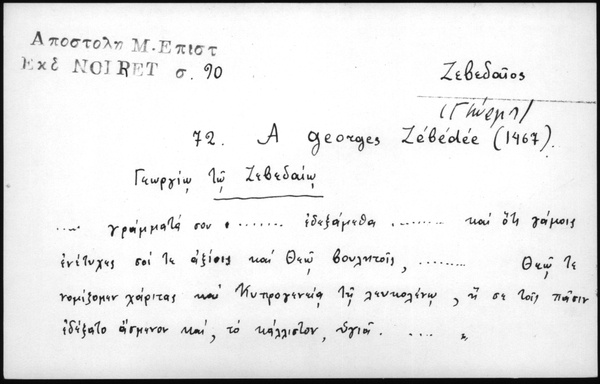 Αποστολη Μ. Επιστ
Εκδ NOIRET σ. 90
Ζεβεδαῖος
(Γιώργη)
72. A Georges Zébédée (1467).
Γεωργίῳ τῷ Ζεβεδαίῳ
..... γράμματά σου ........ ἐδεξάμεθα ......... καὶ ὅτι γάμοις
ἐνέτυχες σοί τε ἀξίοις καὶ Θεῷ βουλητοῖς, ......... Θεῷ τε
νομίζομεν χάριτας καὶ Κυπρογενείᾳ τῇ λευκολένῳ, ἥ σε τοῖς πᾶσιν
ἐδέξατο ἄσμενον καί, τὸ κάλλιστον, ὑγιᾶ. .... "